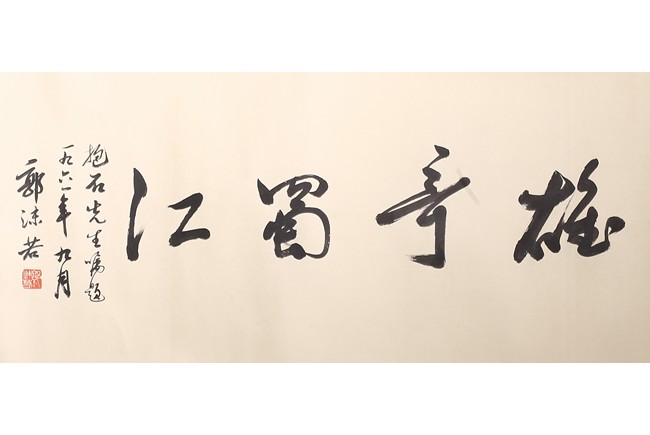 雄奇蜀江
抱石先生嘱题
一九六一年九月
郭沫若